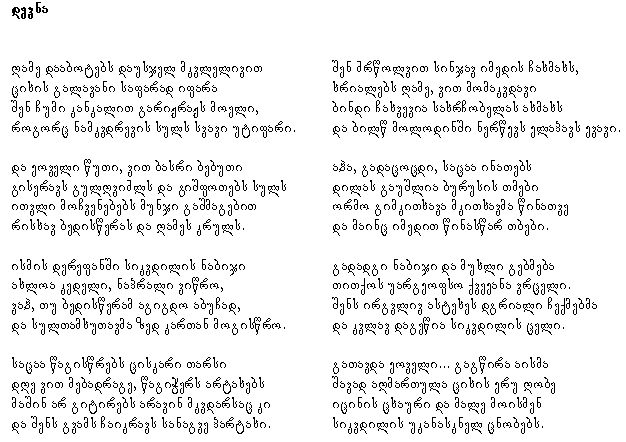 დევნა
ღამე დააბოტებს დაუსჯელ მკვლელივით
ციხის გალავანი საფარად იფარა
შენ ჩუმი კანკალით გარიჟრაჟს მოელი,
როგორც ნამკვდრევის სულს სვავი უტიფარი.
და ყოველი წუთი, ვით ბასრი ბებუთი
გისერავს გულღვიძლს და გიშფოთებს სულს
ითვლი მოჩვენებებს მუნჯი გაშმაგებით
რისხავ ბედისწერას და ღამეს კრულს.
ისმის დერეფანში სიკვდილის ნაბიჯი
ახლოა კედელი, ნაპრალი ვიწრო,
ვაჰ, თუ ბედისწერამ აგიგდო აბუჩად,
და სულთამხუთავმა ზედ კართან მოგისწრო.
საცაა წაგისწრებს ცისკარი თარსი
დღე ვით მებადრაგე, წაგიჭერს არტახებს
მაშინ არ გიტირებს არავინ მკვდარსაც კი
და შენს გვამს ჩაიკრავს სანაგვე პარტახი.
შენ მრწოლვით სინჯავ იმედის ჩახმახს,
ხრიალებს ღამე, ვით მომაკვდავი
ბინდი ჩახვევია სახრჩობელას ახმახს
და ბილწ მოლოდინში ნერწყვს ელაპავს ყვავი.
აჰა, გადაცოცდი, საცაა ინათებს
დილას გაუშლია ბურუსის თმები
ორმო გიმკითხავა მკითხავმა წინათვე
და მაინც იმედით წინასწარ თბები.
გადადგი ნაბიჯი და მუხლი გებმება
თითქოს უარგეყოსო ქვეყანა ვრცელი.
შენს ირგვლივ ასტეხეს დგრიალი ჩექმებმა
და კვლავ დაგეწია სიკვდილის ცელი.
გათავდა ყოველი... გაგწირა აისმა
შავად აღმართულა ციხის ყრუ ღობე
იცინის ცხაური და მალე მოისმენ
სიკვდილის უკანასკნელ ცნობებს.